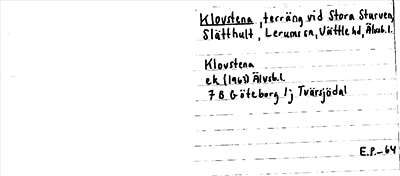 Klovstena, terräng vid Stora Sturven,
Slätthult, Lerums sn, Vättle hd, Älvsb.l.
Klovstena
ek (1963) Älvsb.l.
7 B Göteborg 1j Tvärsjödal
E.P.-64